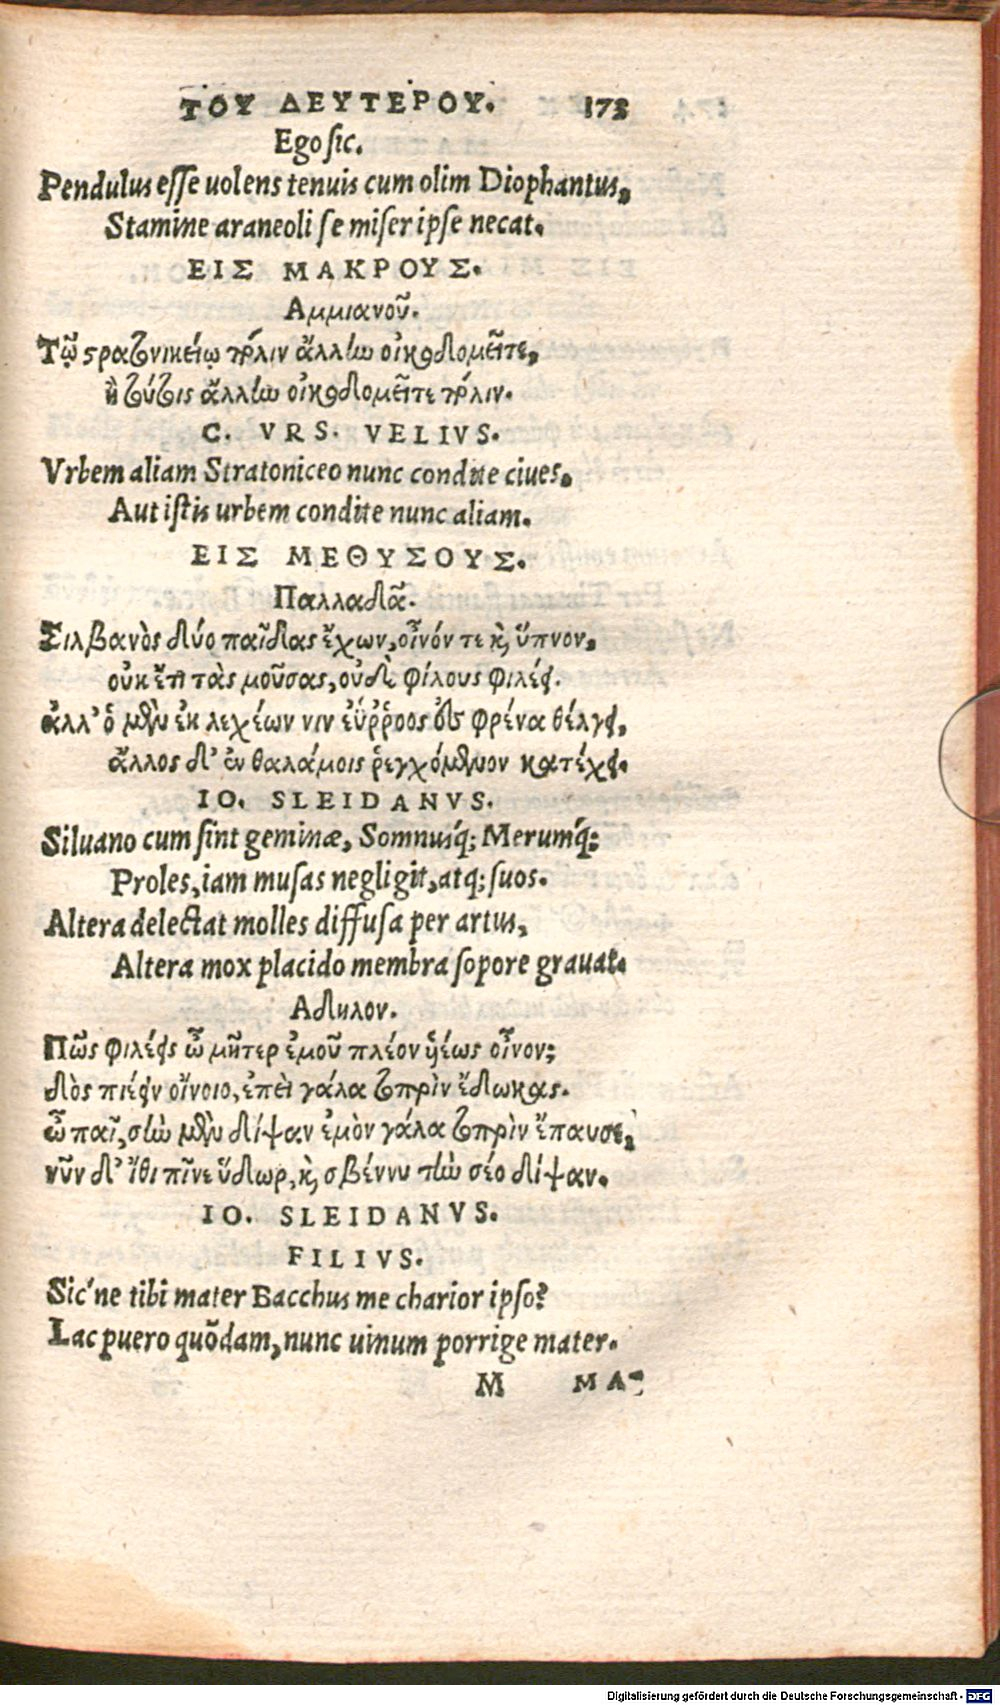 ΤΟΥ ΔΕΥΤΕΡΟΥ. 173
Ego sic.
Pendulus esse uolens tenuis cum olim Diophantus,
Stamine araneoli se miser ipse necat.
ΕΙΣ ΜΑΚΡΟΥΣ.
Αμμιανοῦ.
Τῷ στρατονικείῳ πόλιν ἄλλην οἰκοδομεῖτε,
ἢ τύτις ἄλλην οἰκοδομεῖτε πόλιν.
C. VRS. VELIVS.
Vrbem aliam Stratoniceo nunc condite ciues,
Aut istis urbem condite nunc aliam.
ΕΙΣ ΜΕΘΥΣΟΥΣ.
Παλλαδᾶ.
Σιλβανὸς δύο παῖδας ἔχων, οἶνόν τε κ, ὕπνον,
οὐκ ἔτι τὰς μοῦσας, οὐδὲ φίλους φιλέει.
ἀλλ' ὁ μὲν ἐκ λεχέων νιν ἐΰῤῥοος ἐς φρένα θέλγει,
ἄλλος δ' ἐν θαλάμοις ῥεγχόμενον κατέχει.
IO. SLEIDANVS.
Siluano cum sint geminæ, Somnusq́; Merumq́;
Proles, iam musas negligit, atq; suos.
Altera delectat molles diffusa per artus,
Altera mox placido membra sopore grauat.
Αδηλον.
Πῶς φιλέεις ὦ μῆτερ ἐμοῦ πλέον ὑέως οἶνον;
δὸς πιέειν οἴνοιο, ἐπεὶ γάλα τοπρὶν ἔδωκας.
ὦ παῖ, σὴν μὲν δίψαν ἐμὸν γάλα τοπρὶν ἔπαυσε,
νῦν δ' ἴθι πῖνε ὕδωρ, κ, σβέννυ τὴν σέο δίψαν.
IO. SLEIDANVS.
FILIVS.
Sic'ne tibi mater Bacchus me charior ipso?
Lac puero quōdam, nunc uinum porrige mater.
M MA-
Digitalisierung gefördert durch die Deutsche Forschungsgemeinschaft - DFG